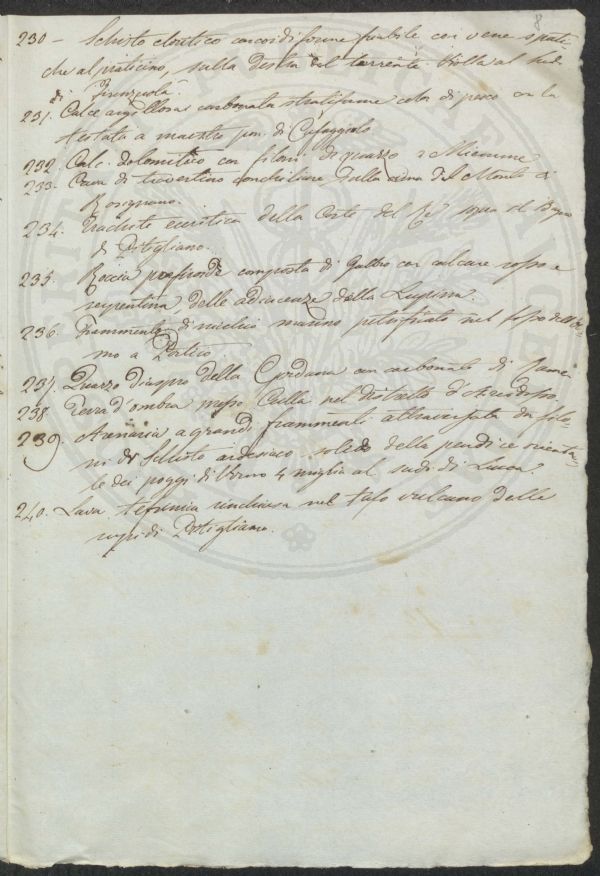 8
230 – Schisto cloritico concoidiforme friabile con vene spati
che al praticino, sulla destra del torrente al Sud
di
231. Calce argillosa carbonata stratiforme color di pesco con la
testata a maestro pm. di Cafaggiolo
232. Calc. dolomitico con filoni di quarzo a Miemme
233. Cava di travertino conchiliare sulla cima del Monte a
Rosignano.
234. Trachite euritica della Corte del Re sopra al Bagno
di Petigliano.
235. Roccia porfiroide composta di Gabbro con calcare rosso e
serpentina, delle adiacenze della
236. Frammento di nicchio marino petrificato nel
mo a Portico.
237. Quarzo Diaspro della con carbonato di Rame
238. Terra d'ombra presso nel distretto d'Arcidosso.
239. Arenaria a grandi frammenti attraversata da filo
ni di Schisto ardesiaco solido della pendice orienta
le dei poggi di 4 miglia al sud di Lucca
240. Lava tefrinica rinchiusa nel tufo vulcano delle
rupi di Petigliano.